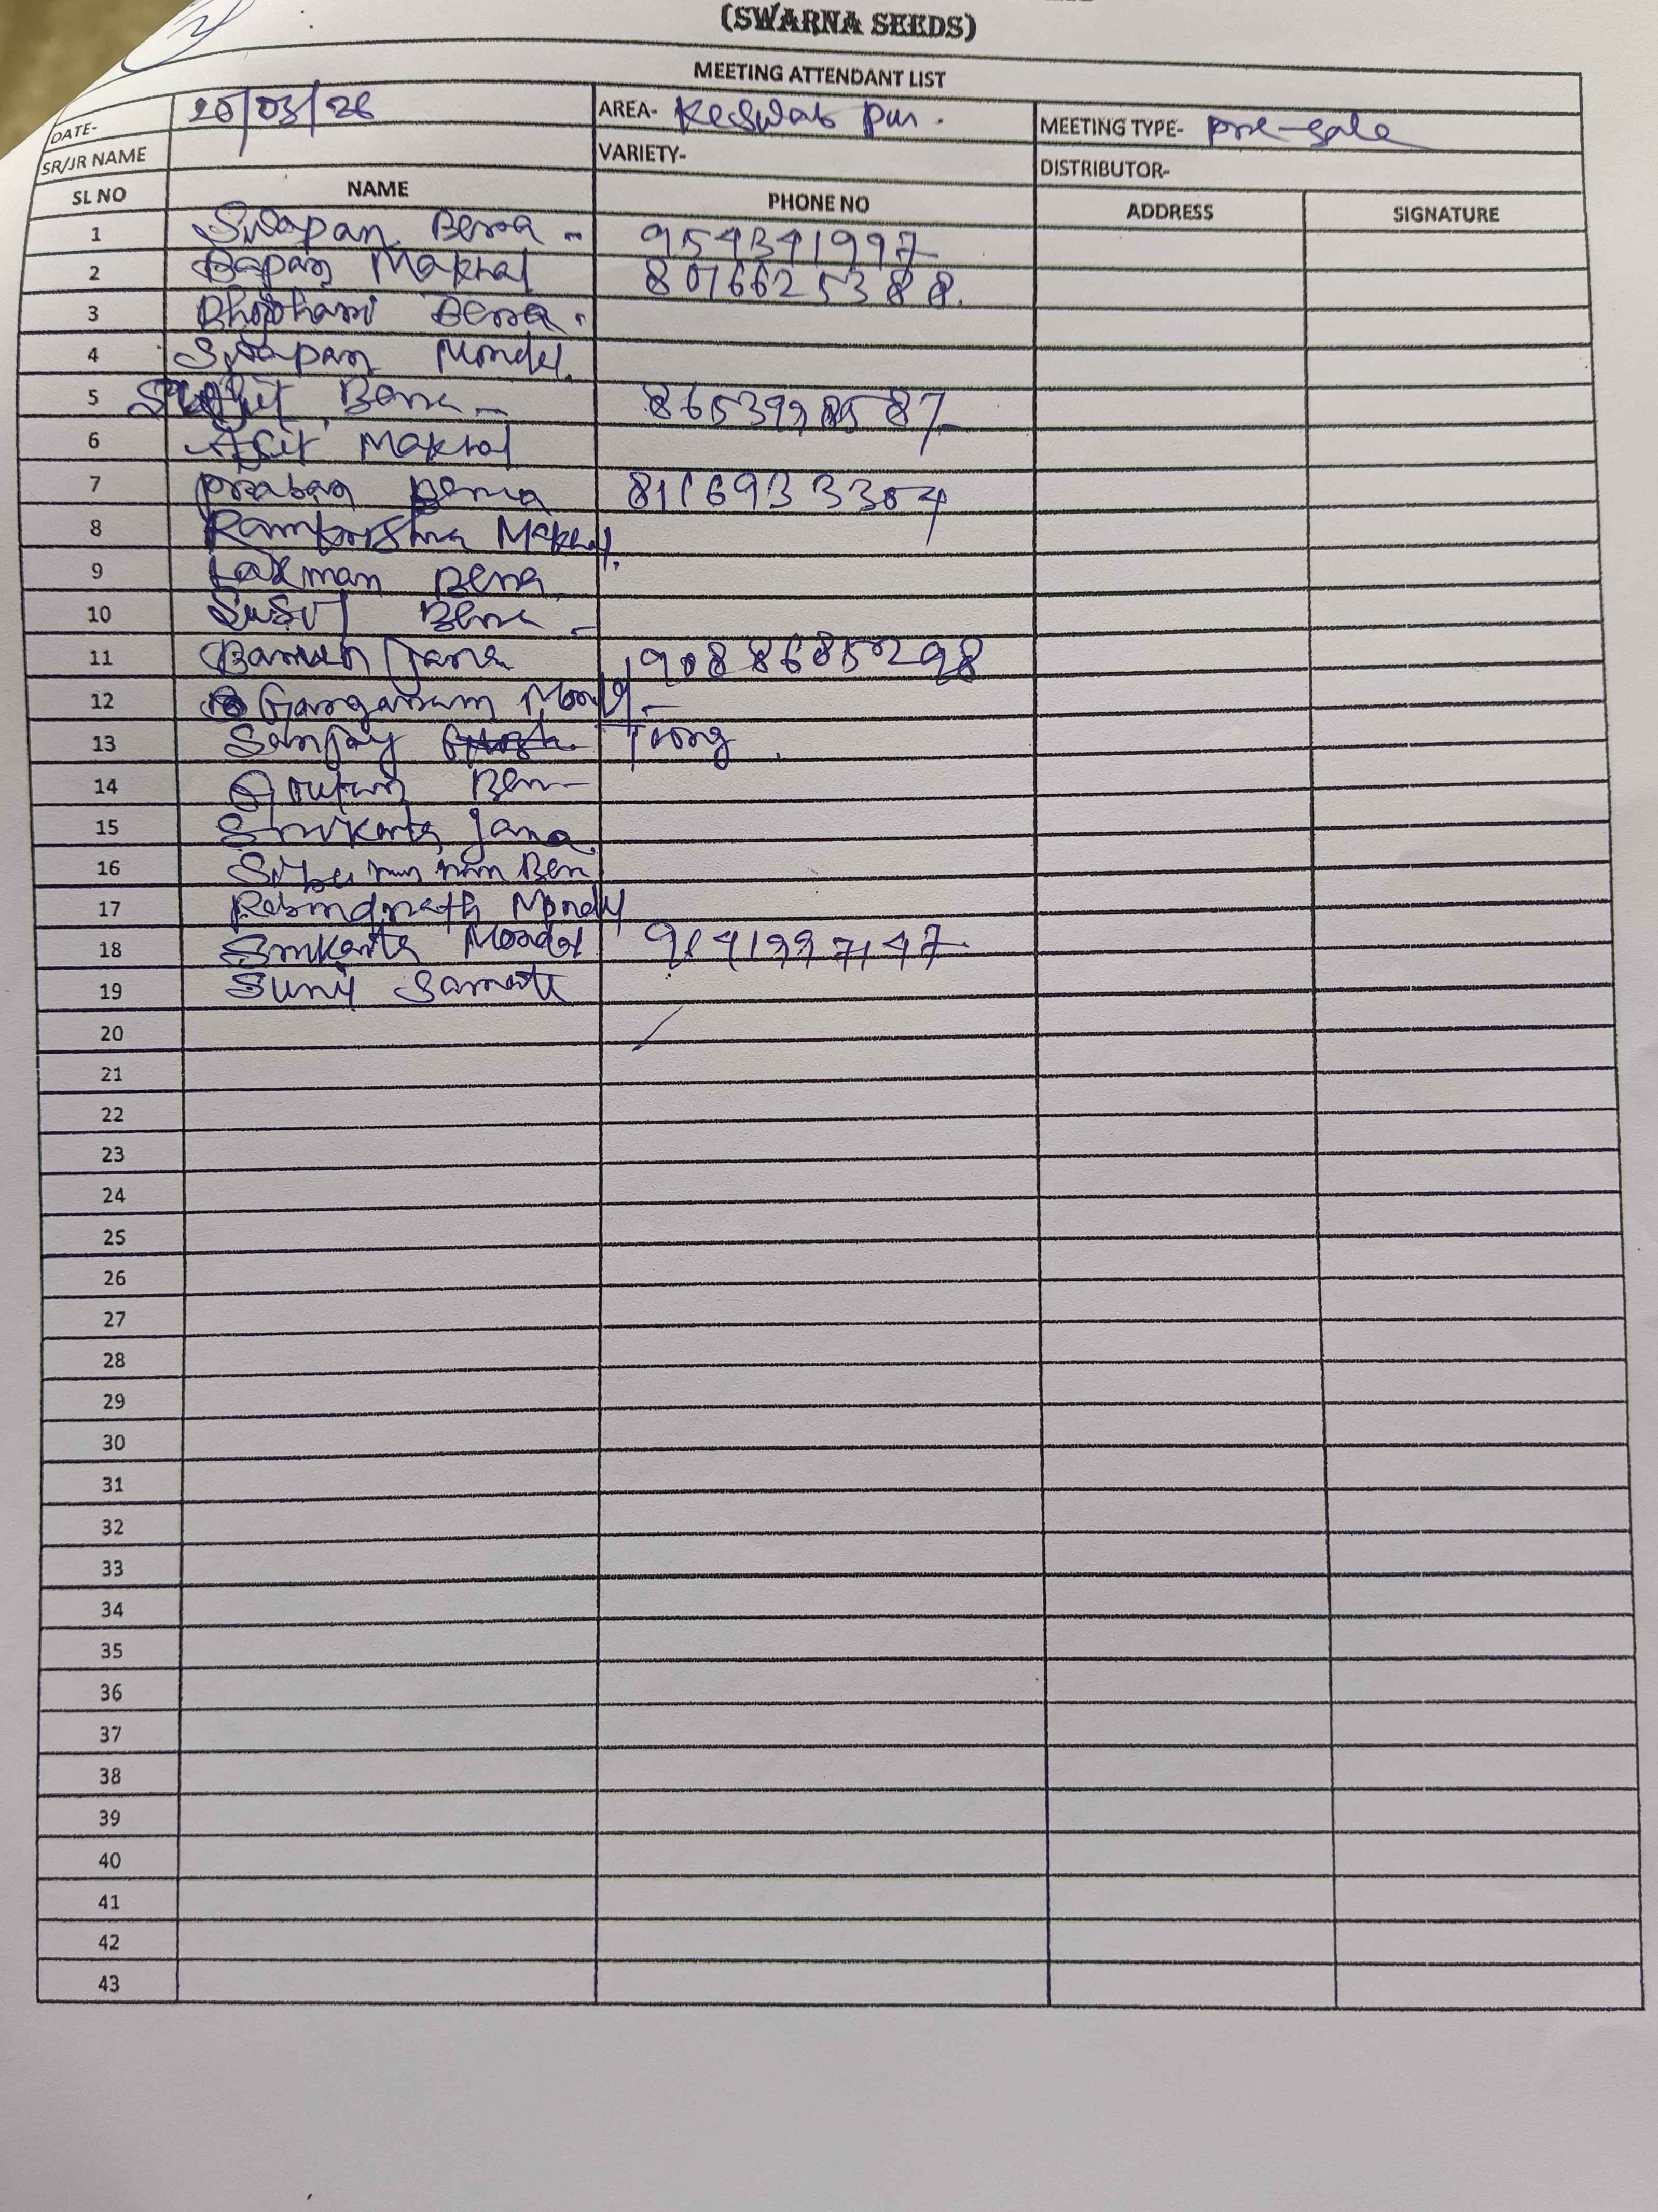 (SWARNA SEEDS)
MEETING ATTENDANT LIST
DATE- 20/03/26 AREA- Keswab pur. MEETING TYPE- pre-sale
SR/JR NAME VARIETY- DISTRIBUTOR-
SL NO NAME PHONE NO ADDRESS SIGNATURE
1 Swapan Bera 954341997
2 Bapan Makhal 8016625388.
3 Bera.
4 Swapan Mondal.
5 Bera
6 Asit Makhal
7 Praban Bera 8116933304
8 Ramkrishna Makhal.
9 Laxman Bera
10 Bera
11 Barun Jana
12 Gangaram Mondal
13 Sanjay Toong.
14 Bera
15 Srikanta Jana
16 Bera
17 Rabindranath Mondal
18 Srikanta Mondal
19 Sunil Samanta
20
21
22
23
24
25
26
27
28
29
30
31
32
33
34
35
36
37
38
39
40
41
42
43